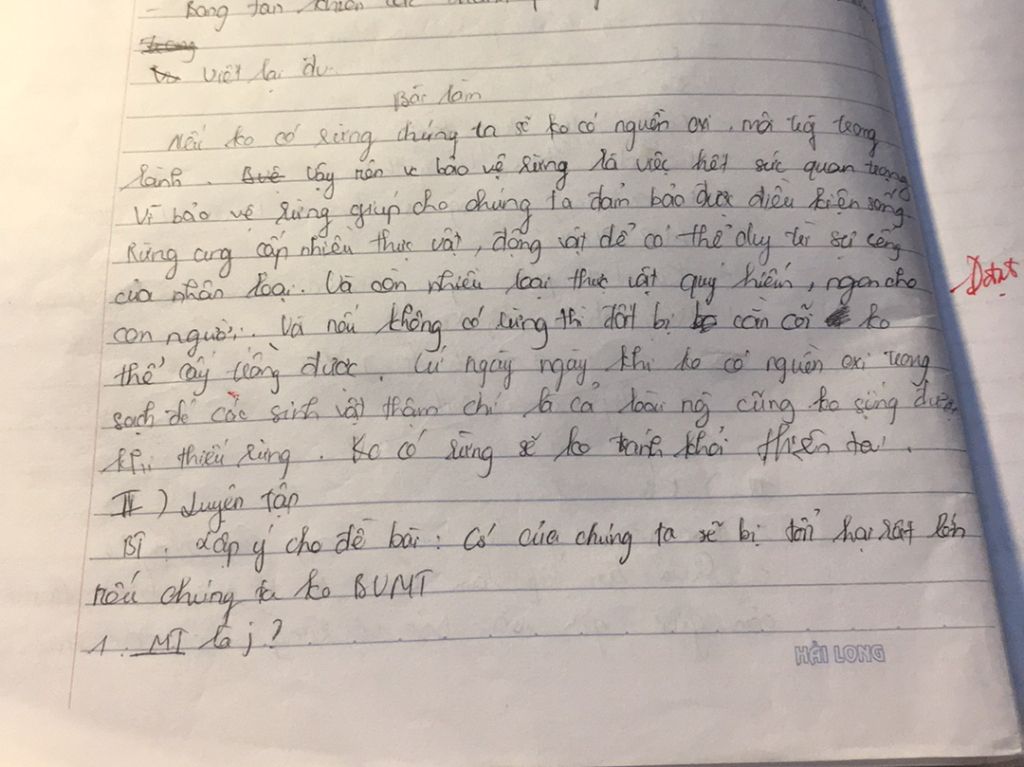 - Bang tan, khiến
trong
Viết lại đv.
Bài làm
Nếu ko có rừng chúng ta sẽ ko có nguồn oxi, môi trg trong
lành. Vậy nên v bảo vệ rừng là việc hết sức quan trọng
Vì bảo vệ rừng giúp cho chúng ta đảm bảo được điều kiện sống.
Rừng cung cấp nhiều thực vật, động vật để có thể duy trì sự sống
của nhân loại. Và còn nhiều loại thực vật quý hiếm, ngon cho
Đ
con người. Và nếu không có rừng thì đất bị cằn cỗi ko
thể cấy trồng được. Cứ ngày ngày khi ko có nguồn oxi trong
sạch để các sinh vật thậm chí là cả loài ng cũng ko sống được
khi thiếu rừng. Ko có rừng sẽ ko tránh khỏi thiên tai.
II) Luyện tập
B1. Lập ý cho đề bài: Cs của chúng ta sẽ bị tổn hại rất lớn
nếu chúng ta ko BVMT
1. MT là j?
HẢI LONG